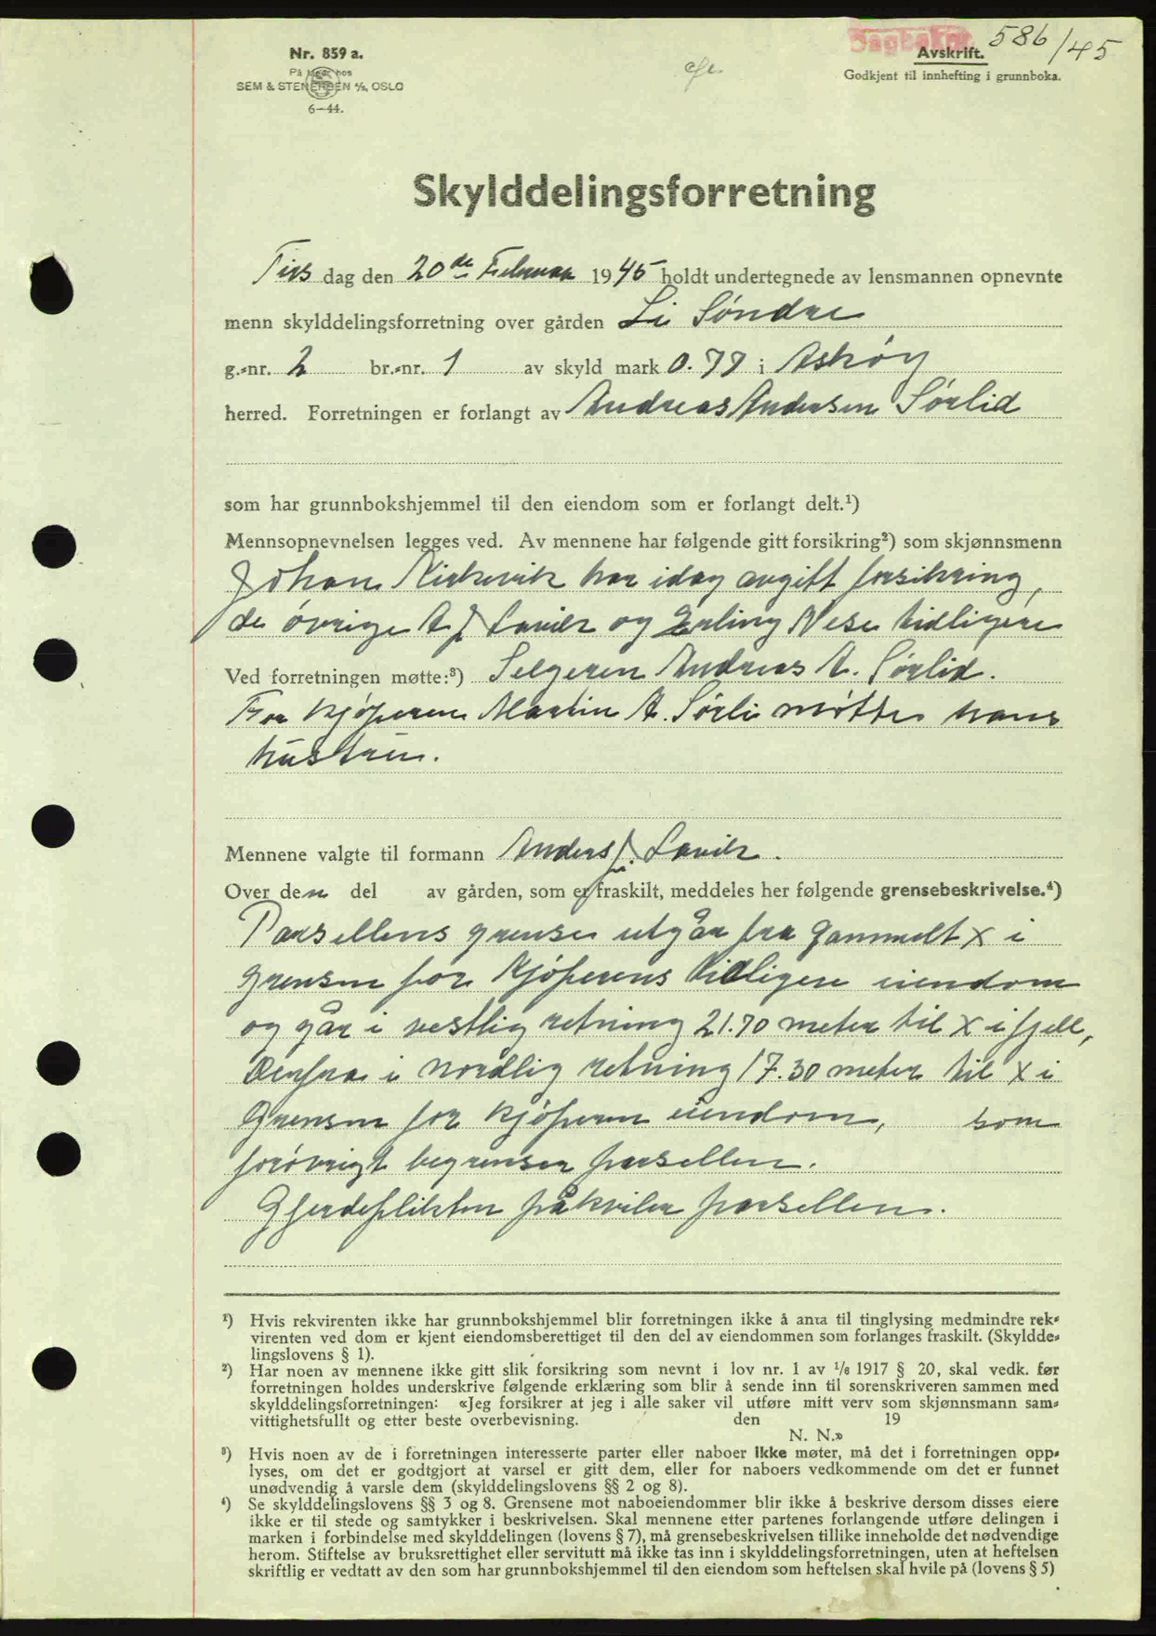 Nr. 859 a.
På lager hos
SEM & STENERSEN A/S, OSLO
6—44.
Dagbok nr. 586/45
Avskrift.
Godkjent til innhefting i grunnboka.
Skylddelingsforretning
Tirs dag den 20de Februar 1945 holdt undertegnede av lensmannen opnevnte
menn skylddelingsforretning over gården Li Søndre
g.-nr. 2 br.-nr. 1 av skyld mark 0.77 i Askøy
herred. Forretningen er forlangt av Andreas Andersen Sørlid
som har grunnbokshjemmel til den eiendom som er forlangt delt.¹)
Mennsopnevnelsen legges ved. Av mennene har følgende gitt forsikring²) som skjønnsmenn
Johan Kirkevik har idag avgitt forsikring,
de øvrige A J Lavik og Erling Nese tidligere
Ved forretningen møtte:³) Selgeren Andreas A. Sørlid.
For kjøperen Martin A. Sørli møtte hans
hustru.
Mennene valgte til formann Anders J. Lavik.
Over den del av gården, som er fraskilt, meddeles her følgende grensebeskrivelse.⁴)
Parsellens grense utgår fra gammelt X i
grensen for kjøperens tidligere eiendom
og går i vestlig retning 21.70 meter til X i fjell,
derfra i nordlig retning 17.30 meter til X i
grensen for kjøperen eiendom, som
forøvrigt begrenser parsellen.
Gjerdeplikten påkviler parsellen.
¹) Hvis rekvirenten ikke har grunnbokshjemmel blir forretningen ikke å anta til tinglysing medmindre rek-
virenten ved dom er kjent eiendomsberettiget til den del av eiendommen som forlanges fraskilt. (Skyldde-
lingslovens § 1).
²) Har noen av mennene ikke gitt slik forsikring som nevnt i lov nr. 1 av ¹/₆ 1917 § 20, skal vedk. før
forretningen holdes underskrive følgende erklæring som blir å sende inn til sorenskriveren sammen med
skylddelingsforretningen: «Jeg forsikrer at jeg i alle saker vil utføre mitt verv som skjønnsmann sam-
vittighetsfullt og etter beste overbevisning. den 19
N. N.»
³) Hvis noen av de i forretningen interesserte parter eller naboer ikke møter, må det i forretningen opp-
lyses, om det er godtgjort at varsel er gitt dem, eller for naboers vedkommende om det er funnet
unødvendig å varsle dem (skylddelingslovens §§ 2 og 8).
⁴) Se skylddelingslovens §§ 3 og 8. Grensene mot naboeiendommer blir ikke å beskrive dersom disses eiere
ikke er til stede og samtykker i beskrivelsen. Skal mennene etter partenes forlangende utføre delingen i
marken i forbindelse med skylddelingen (lovens § 7), må grensebeskrivelsen tillike inneholde det nødvendige
herom. Stiftelse av bruksrettighet eller servitutt må ikke tas inn i skylddelingsforretningen, uten at heftelsen
skriftlig er vedtatt av den som har grunnbokshjemmel til den eiendom som heftelsen skal hvile på (lovens § 5)